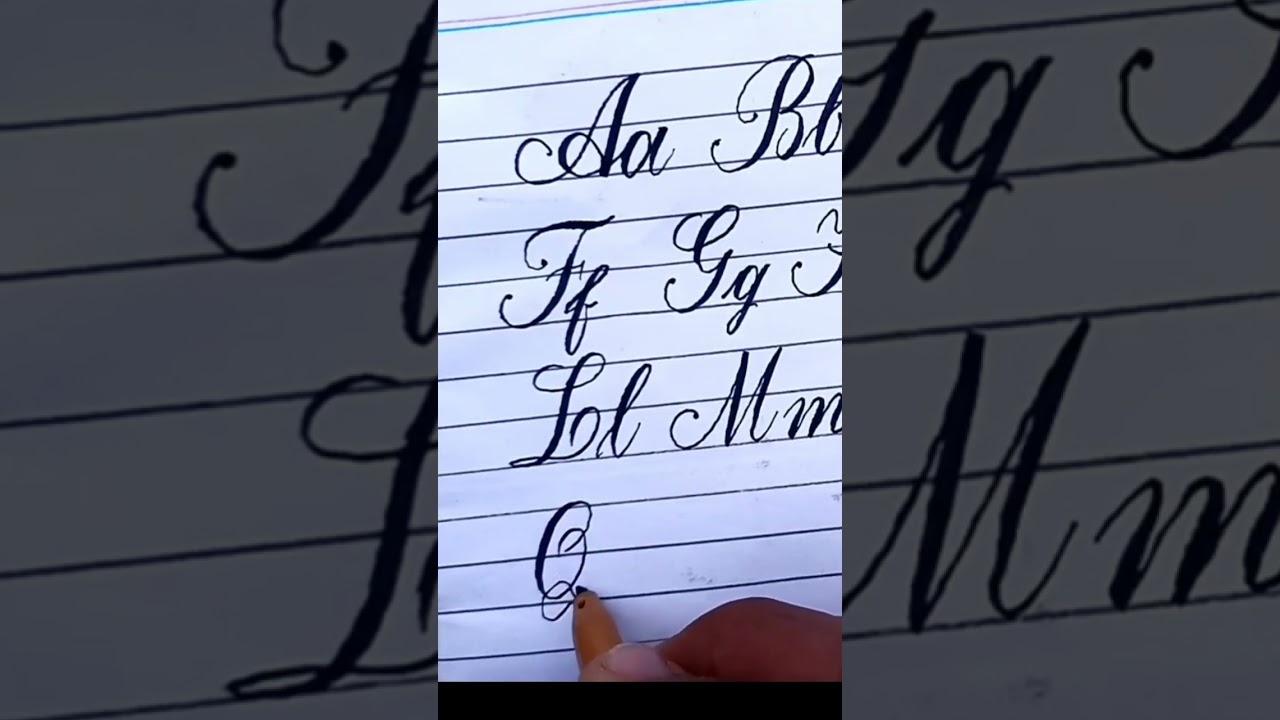 Aa Bb
Ff Gg
Ll Mm
Q